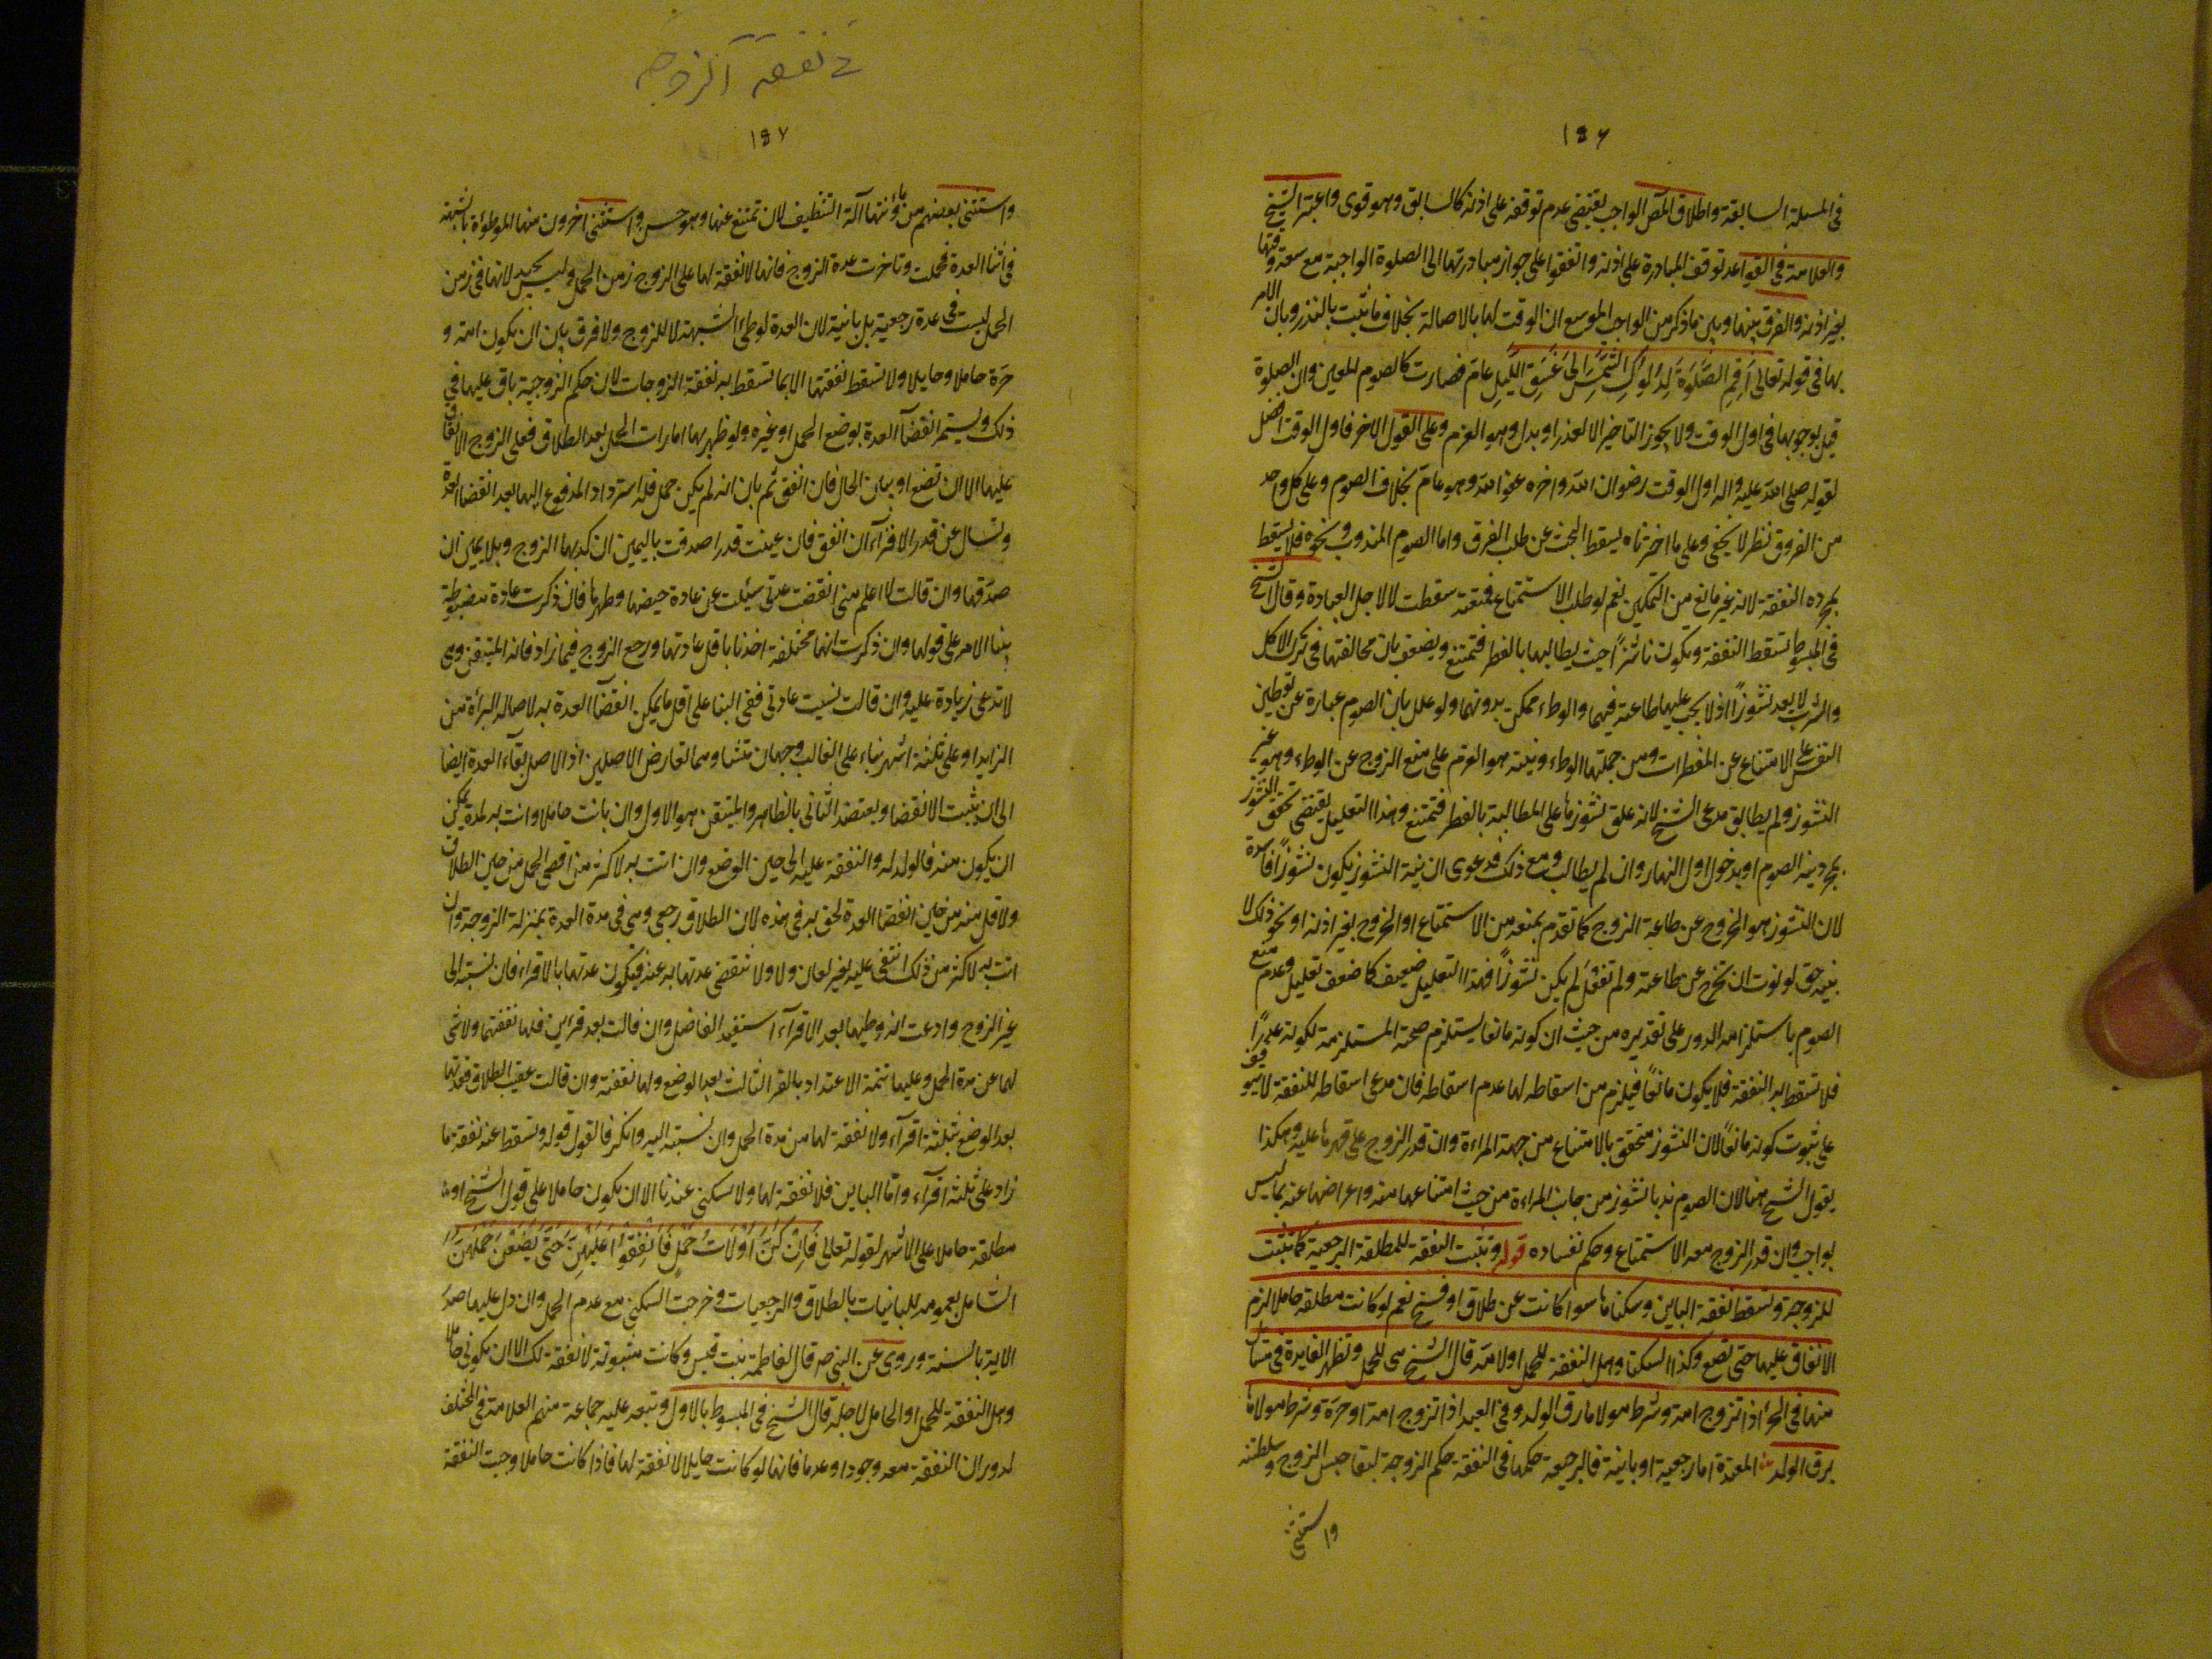 ١٥٦
في المسئلة السابقة واطلاق الامر الواجب يقتضي عدم توقفه على اذنه كالسابق وهو قوى واعتبر الشيخ
والعلامة في القواعد توقف المبادرة على اذنه واتفقوا على جواز مبادرتها الى الصلوة الواجبة مع سعة وقتها
بغير اذنه والفرق بينها وبين ما ذكر من الواجب الموسع ان الوقت لها بالاصالة بخلاف ما ثبت بالنذر وبان الامر
بها في قوله تعالى اَقِمِ الصَّلٰوةَ لِدُلُوكِ الشَّمْسِ اِلٰى غَسَقِ اللَّيْلِ عام فصارت كالصوم المعين وان الصلوة
قيل بوجوبها في اول الوقت ولا يجوز التاخير الا لعذر او بدل وهو العزم وعلى القول الاخر فاول الوقت افضل
لقوله صلى الله عليه واله اول الوقت رضوان الله واخره عفو الله وهو عام بخلاف الصوم وعلى كل واحد
من الفروق نظر لا يخفى وعلى ما اخترناه يسقط البحث عن طلب الفرق واما الصوم المندوب ونحوه فلا يسقط
بمجرده النفقة لانه غير مانع من التمكين نعم لو طلب الاستمتاع فمنعته سقطت لا لاجل العبادة وقال الشيخ
في المبسوط تسقط النفقة ويكون ناشزاً حيث يطالبها بالفطر فتمتنع ويضعف بان مخالفتها في ترك الاكل
والشرب لا يعد نشوزاً اذ لا يجب عليها طاعته فيهما والوطء ممكن بدونهما ولو علل بان الصوم عبارة عن توطين
النفس على الامتناع عن المفطرات ومن جملتها الوطء ونيته هو العزم على منع الزوج عن الوطء وهو غير
النشوز ولم يطابق مدعى الشيخ لانه علق نشوزها على المطالبة بالفطر فتمتنع وهذا التعليل يقتضي تحقق النشوز
بمجرد نية الصوم او بدخول اول النهار وان لم يطالب ومع ذلك فدعوى ان نية النشوز يكون نشوزاً فاسدة
لان النشوز هو الخروج عن طاعة الزوج كما تقدم بمنعه من الاستمتاع او الخروج بغير اذنه او نحو ذلك لا
بنيته حتى لو نوت ان تخرج عن طاعته ولم تفعل لم يكن نشوزاً فهذا التعليل ضعيف كما ضعف تعليل وعدم منع
الصوم باستلزامه الدور على تقديره من حيث ان كونه مانعا يستلزم صحة المستلزمة لكونه عذراً
فلا تسقط به النفقة فلا يكون مانعاً فيلزم من اسقاطه لها عدم اسقاطه فان مدعى اسقاطه للنفقة لا يتوقف
على ثبوت كونه مانعاً لان النشوز متحقق بالامتناع من جهة المراءة وان قدر الزوج على قهرها عليه وهكذا
يقول الشيخ هنا لان الصوم ندبا نشوز من جانب المراءة من حيث امتناعها منه واعراضها عنه بما ليس
بواجب وان قدر الزوج معه الاستمتاع وحكم بفساده قوله وتثبت النفقة للمطلقة الرجعية كما تثبت
للزوجة وتسقط نفقة البائن وسكناها سوا كانت عن طلاق او فسخ نعم لو كانت مطلقة حاملا لزم
الانفاق عليها حتى تضع وكذا السكنا وهل النفقة للحمل او لامه قال الشيخ هي للحمل وتظهر الفائدة في مسائل
منها في الحر اذا تزوج امة وشرط مولاها رق الولد وفي العبد اذا تزوج امة او حرة وشرط مولاها
برق الولد المعتدة اما رجعية او باينة فالرجعية حكمها في النفقة حكم الزوجة لبقاء حبس الزوج وسلطنته
واستثنى
في نفقة الزوجة
١٥٧
واستثنى بعضهم من مؤنتها آلة التنظيف لان تمتنع عنها وهو حسن واستثنى اخرون منها الموطوءة بالشبهة
في اثنا العدة فحملت وتاخرت عدة الزوج فانها لا نفقة لها على الزوج زمن الحمل وليس بجيد لانها في زمن
الحمل ليست في عدة رجعية بل باينة لان العدة لوطء الشبهة لا للزوج ولا فرق بين ان يكون امة و
حرة حاملا وحايلا ولا تسقط نفقتها الا بما تسقط به نفقة الزوجات لان حكم الزوجية باق عليها في
ذلك ويستمر انقضاء العدة بوضع الحمل او غيره ولو ظهر بها امارات الحمل بعد الطلاق فعلى الزوج الانفاق
عليها الى ان تضع او يبين الحال فان انفق ثم بان انه لم يكن حمل فله استرداد المدفوع اليها بعد انقضا العدة
وتسال عن قدر الاقراء ان انفق فان عينت قدرا صدقت باليمين ان كذبها الزوج وبلا يمين ان
صدقها وان قالت لا اعلم متى انقضت عدتي سئلت عن عادة حيضها وطهرها فان ذكرت عادة مضبوطة
بنينا الامر على قولها وان ذكرت انها مختلفة اخذنا باقل عادتها ورجع الزوج فيما زاد فانه المتيقن وهي
لا تدعي زيادة عليه وان قالت نسيت عادتي ففي البنا على اقل ما يمكن انقضاء العدة به لاصالة البراءة من
الزايد او على ثلثة اشهر بناء على الغالب وجهان متساويهما لتعارض الاصلين اذ الاصل بقاء العدة ايضا
الى ان يثبت الانقضا ويعتضد الثاني بالظاهر والمتيقن هو الاول وان بانت حاملا واتت به لمدة يمكن
ان يكون منه فالولد له والنفقة عليه الى حين الوضع وان اتت به لاكثر من اقصى الحمل من حين الطلاق
ولاقل منه من حين انقضا العدة لحق به في هذه لان الطلاق رجعي وهي في مدة العدة بمنزلة الزوجة وان
اتت به لاكثر من ذلك انتفى عليه بغير لعان ولا ولا تنقضي عدتها به عنه فيكون عدتها بالاقراء فان نسبته الى
غير الزوج وادعت انه وطيها بعد الاقراء استعيد الفاضل وان قالت بعد قرئين فلها نفقتهما ولا شى
لها عن مدة الحمل وعليها تتمة الاعتداد بالقرء الثالث بعد الوضع ولها نفقته وان قالت عقيب الطلاق فعدتها
بعد الوضع بثلثة اقراء ولا نفقة لها من مدة الحمل وان نسبته اليه وانكر فالقول قوله وتسقط عنه نفقة ما
زاد على ثلثة اقراء واما البائن فلا نفقة لها ولا سكنى عندنا الا ان يكون حاملا على قول الشيخ او
مطلقة حاملا على الاشهر لقوله تعالى فَاِنْ كُنَّ اُولَاتُ حَمْلٍ فَاَنْفِقُوا عَلَيْهِنَّ حَتّٰى يَضَعْنَ حَمْلَهُنَّ
الشامل بعمومه للباينات بالطلاق والرجعيات وخرجت السكنى مع عدم الحمل وان دل عليها صدر
الاية بالسنة وروى عن النبي ص قال لفاطمة بنت قيس وكانت مبتوتة لا نفقة لك الا ان يكونى حاملا
وهل النفقة للحمل او الحامل لاجله قال الشيخ في المبسوط بالاول وتبعه عليه جماعة منهم العلامة في المختلف
لدوران النفقة معه وجودا وعدما فانها لو كانت حايلا لا نفقة لها فاذا كانت حاملا وجبت النفقة